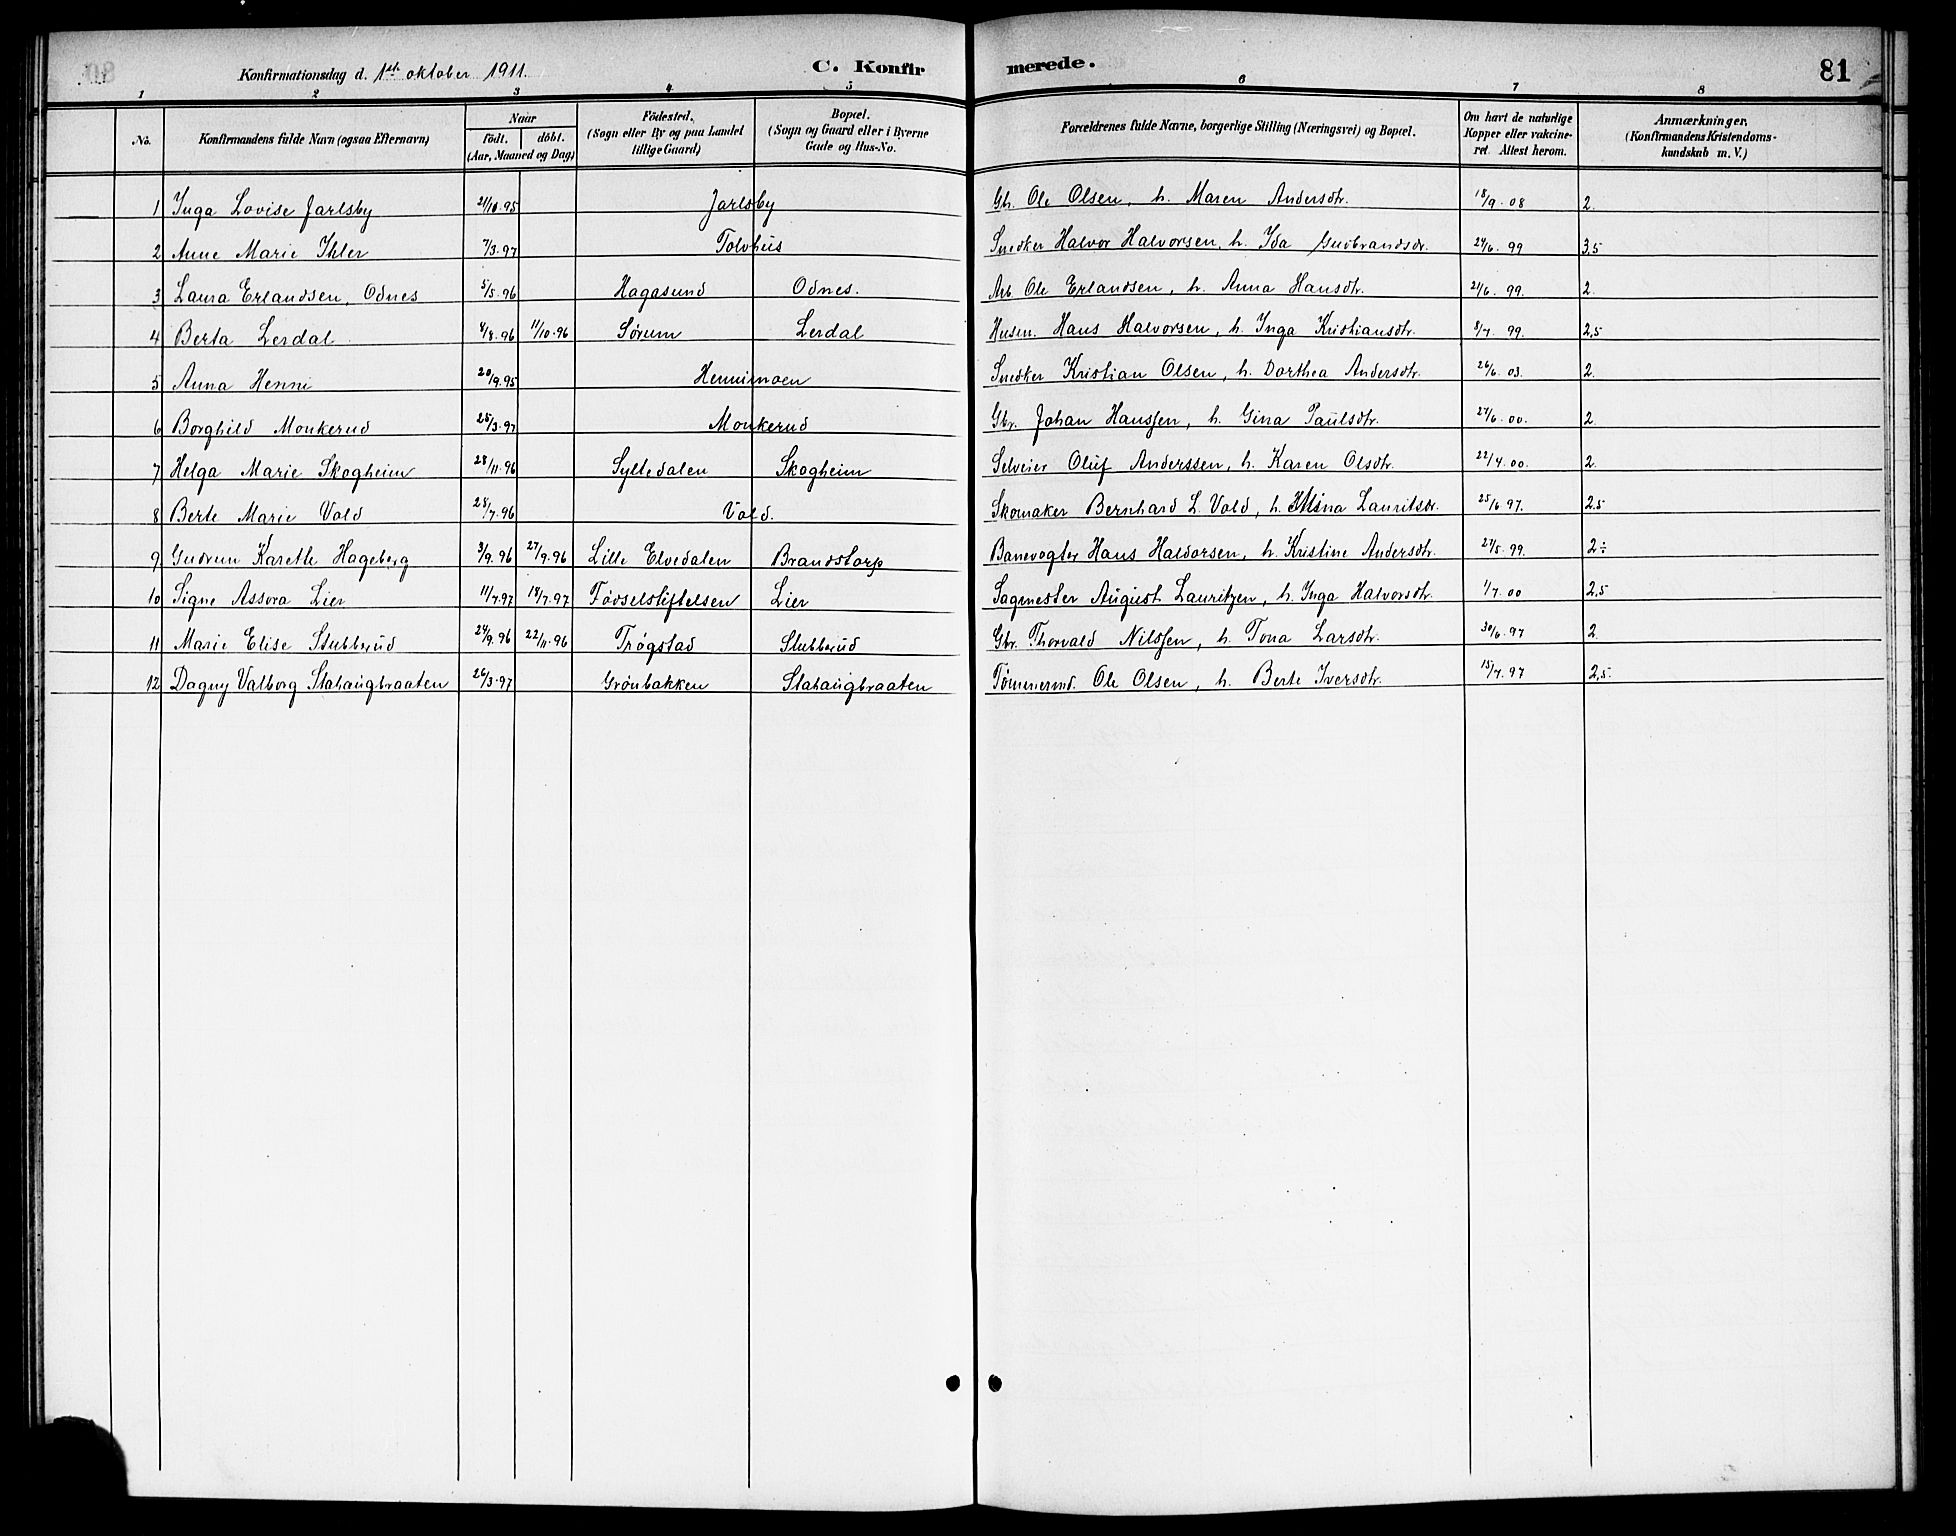 Konfirmationsdag d. 1ste oktober 1911. C. Konfirmerede. 81
1 2 3 4 5 6 7 8
No. Konfirmandens fulde Navn (ogsaa Efternavn) Naar født. døbt. (Aar, Maaned og Dag) Fødested. (Sogn eller By og paa Landet tillige Gaard) Bopæl. (Sogn og Gaard eller i Byerne Gade og Hus-No. Forældrenes fulde Navne, borgerlige Stilling (Næringsvei) og Bopæl. Om havt de naturlige Kopper eller vakcineret. Attest herom. Anmærkninger. (Konfirmandens Kristendomskundskab m. V.)
1 Inga Lovise Jarlsby 21/10.95 Jarlsby Gbr. Ole Olsen, h. Maren Andersdtr. 18/9.08 2.
2 Anne Marie Ihler 7/3.97 Tolvhus Snedker Halvor Halvorsen, h. Ida Gudbrandsdr. 24/6.99 3,5
3 Laura Erlandsen, Odnes 5/5.96 Hagasund Odnes. Arb. Ole Erlandsen, h. Anna Hansdtr. 21/6.99. 2.
4 Berta Lerdal 4/8.96 11/10.96 Sørum Lerdal Husm. Hans Halvorsen, h. Inga Kristiansdtr. 8/7.99. 2,5
5 Anna Henni 20/9.95 Hennimoen Snedker Kristian Olsen, h. Dorthea Andersdtr. 26/6.03. 2.
6 Borghild Monkerud 25/3.97 Monkerud Gbr. Johan Hanssen, h. Gina Paulsdtr. 27/6.00. 2.
7 Helga Marie Skogheim 28/11.96 Syltedalen Skogheim Selveier Oluf Anderssen, h. Karen Olsdtr. 22/4.00. 2.
8 Berte Marie Vold 28/7.96 Vold. Skomaker Bernhard L. Vold, h. Mina Lauritsdr. 25/6 97. 2.5
9 Gudrun Karethe Hageberg 3/9.96 27/9.96 Lille Elvedalen Brandstorp Banevogter Hans Haldorsen, h. Kristine Andersdtr. 27/5.99. 2÷
10 Signe Assora Lier 11/7.97 18/7.97 Fødselstiftelsen Lier Sagmester August Lauritzen, h. Inga Halvorsdtr. 1/7.00 2,5
11 Marie Elise Stubberud 24/9.96 22/11.96 Trøgstad Stubberud Gbr. Thorvald Nilssen, h. Tona Larsdtr. 30/6.97 2.
12 Dagny Valborg Stahaugbraaten 26/3.97 Grønbakken Stahaugbraaten Tømmermd. Ole Olsen, h. Berte Iversdtr. 15/7.97 2,5.